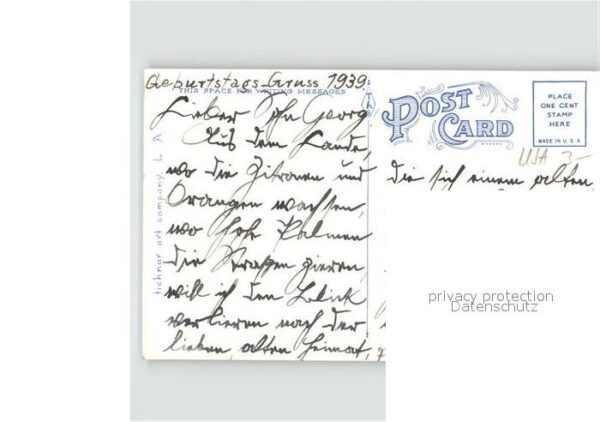 Geburtstags-Gruss 1939.
THIS SPACE FOR WRITING MESSAGES
Lieber Georg
Aus dem Lande,
wo die Zitronen und
Orangen wachsen,
wo hohe Palmen
die Strassen zieren
will ich den Blick
verlieren nach der
lieben, alten Heimat,
tichnor art company L A
POST CARD
PLACE
ONE CENT
STAMP
HERE
MADE IN U.S.A.
USA 3-
die sich einem alten
privacy protection
Datenschutz